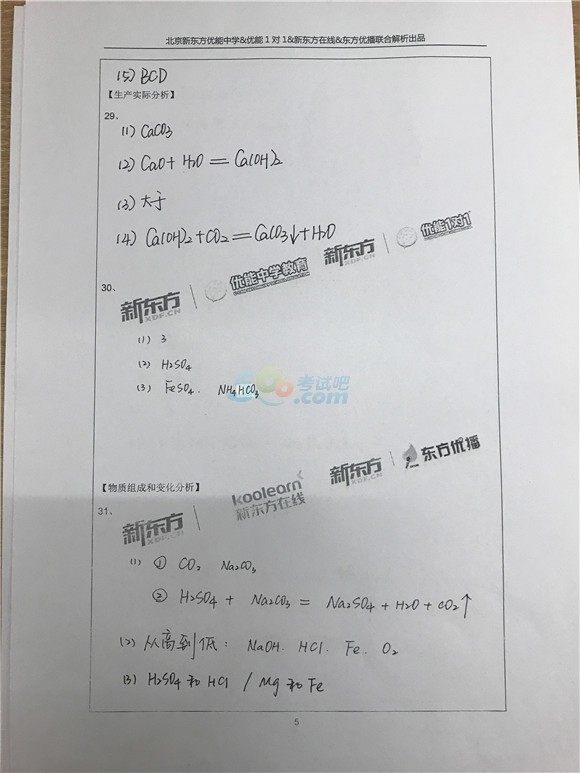 北京新东方优能中学&优能1对1&新东方在线&东方优播联合解析出品
(5) BCD
【生产实际分析】
29、
(1) CaCO3
(2) CaO + H2O = Ca(OH)2
(3) 大于
(4) Ca(OH)2 + CO2 = CaCO3↓ + H2O
新东方 XDF.CN 优能中学教育 新东方 XDF.CN 优能1对1
30、
(1) 3
(2) H2SO4
(3) FeSO4. NH4HCO3
考试吧 .com
新东方 XDF.CN 东方优播
【物质组成和变化分析】
31、
新东方 XDF.CN koolearn 新东方在线
(1) ① CO2 Na2CO3
② H2SO4 + Na2CO3 = Na2SO4 + H2O + CO2↑
(2) 从高到低: NaOH. HCl. Fe. O2
(3) H2SO4和HCl / Mg和Fe
5